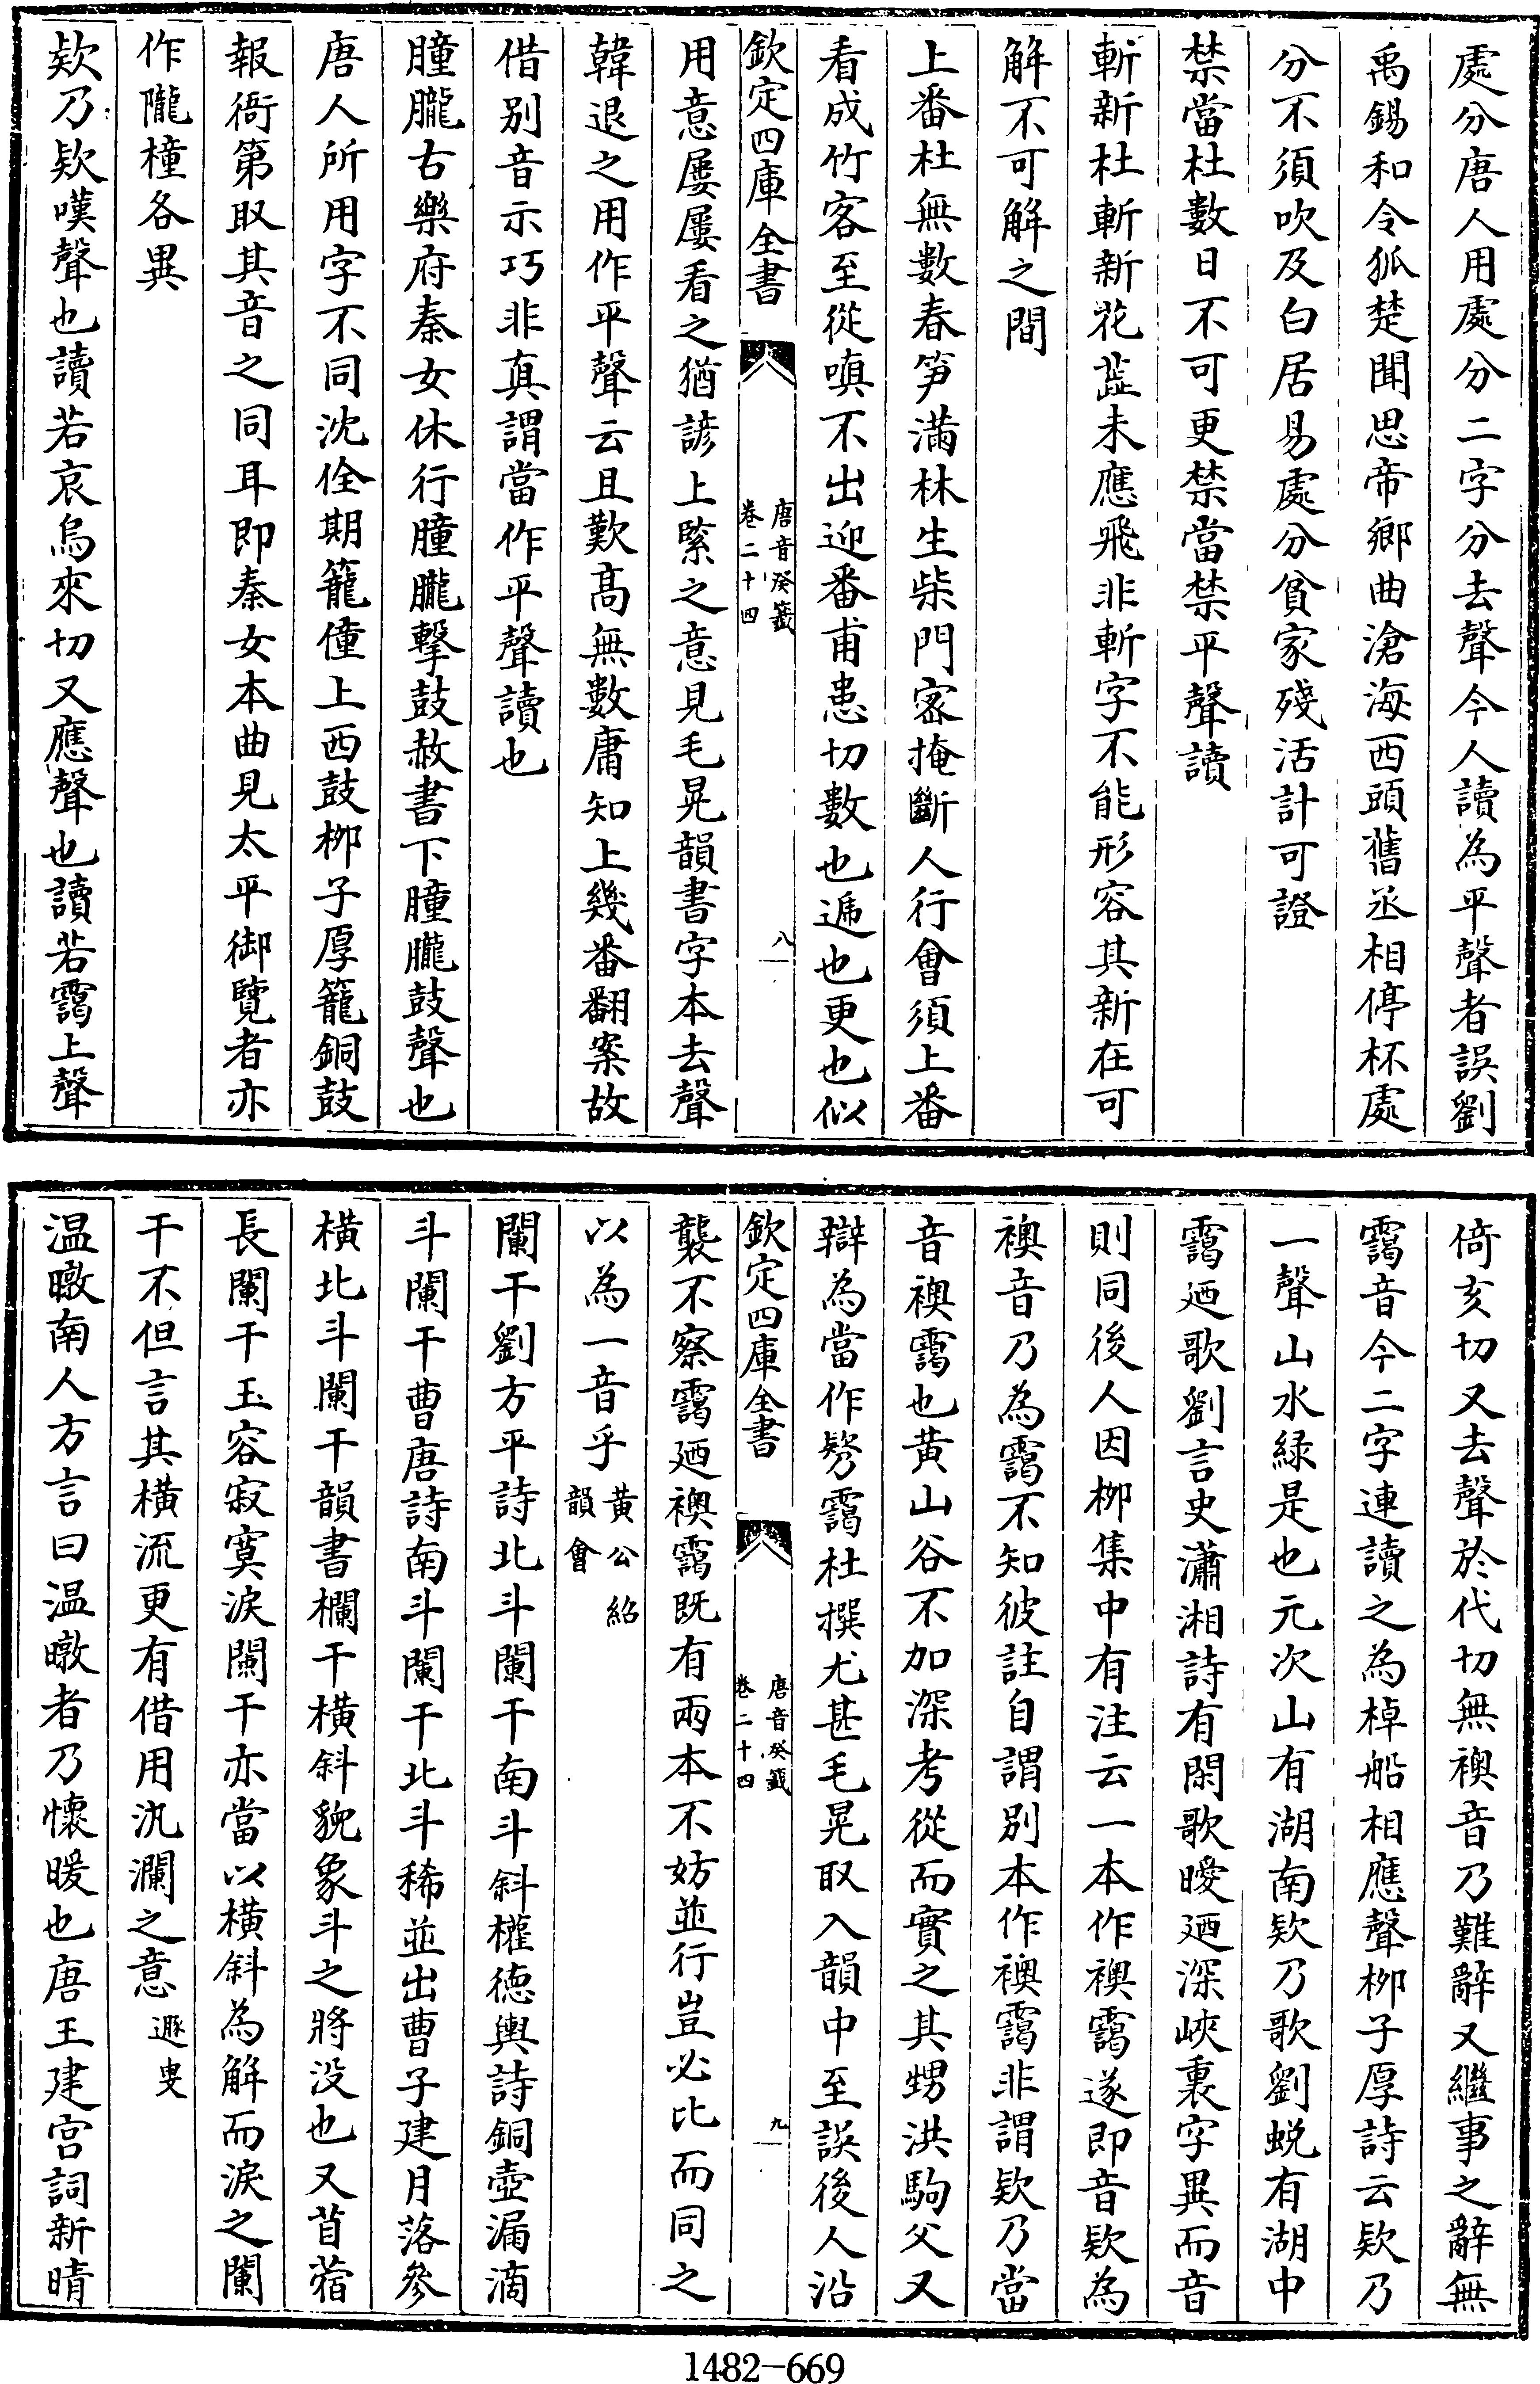 處分唐人用處分二字分去聲今人讀為平聲者誤劉
禹錫和令狐楚聞思帝鄉曲滄海西頭舊丞相停杯處
分不須吹及白居易處分貧家殘活計可證
禁當杜數日不可更禁當禁平聲讀
斬新杜斬新花蕋未應飛非斬字不能形容其新在可
解不可解之間
上番杜無數春笋滿林生柴門宻掩斷人行會須上番
看成竹客至從嗔不出迎番甫患切數也遞也更也似
欽定四庫全書
唐音癸籤
卷二十四
八
用意屢屢看之猶諺上緊之意見毛晃韻書字本去聲
韓退之用作平聲云且歎高無數庸知上幾番翻案故
借别音示巧非真謂當作平聲讀也
瞳朧古樂府秦女休行瞳朧擊鼓赦書下瞳朧鼓聲也
唐人所用字不同沈佺期籠僮上西鼓栁子厚籠銅鼓
報衙第取其音之同耳即秦女本曲見太平御覽者亦
作隴橦各異
欵乃欵嘆聲也讀若哀烏來切又應聲也讀若靄上聲
倚亥切又去聲於代切無襖音乃難辭又繼事之辭無
靄音今二字連讀之為棹船相應聲栁子厚詩云欵乃
一聲山水緑是也元次山有湖南欵乃歌劉蜕有湖中
靄廼歌劉言史瀟湘詩有閑歌曖廼深峽裏字異而音
則同後人因栁集中有注云一本作襖靄遂即音欵為
襖音乃為靄不知彼註自謂别本作襖靄非謂欵乃當
音襖靄也黄山谷不加深考從而實之其甥洪駒父又
辯為當作㟹靄杜撰尤甚毛晃取入韻中至誤後人沿
欽定四庫全書
唐音癸籤
卷二十四
九
襲不察靄廼襖靄既有兩本不妨並行豈必比而同之
以為一音乎黄公紹韻會
闌干劉方平詩北斗闌干南斗斜權徳輿詩銅壺漏滴
斗闌干曹唐詩南斗闌干北斗稀並出曹子建月落參
橫北斗闌干韻書欄干橫斜貌象斗之將没也又苜蓿
長闌干玉容寂寞淚闌干亦當以橫斜為解而淚之闌
干不但言其橫流更有借用汍瀾之意遯叟
温暾南人方言曰温暾者乃懷暖也唐王建宫詞新晴
1482-669